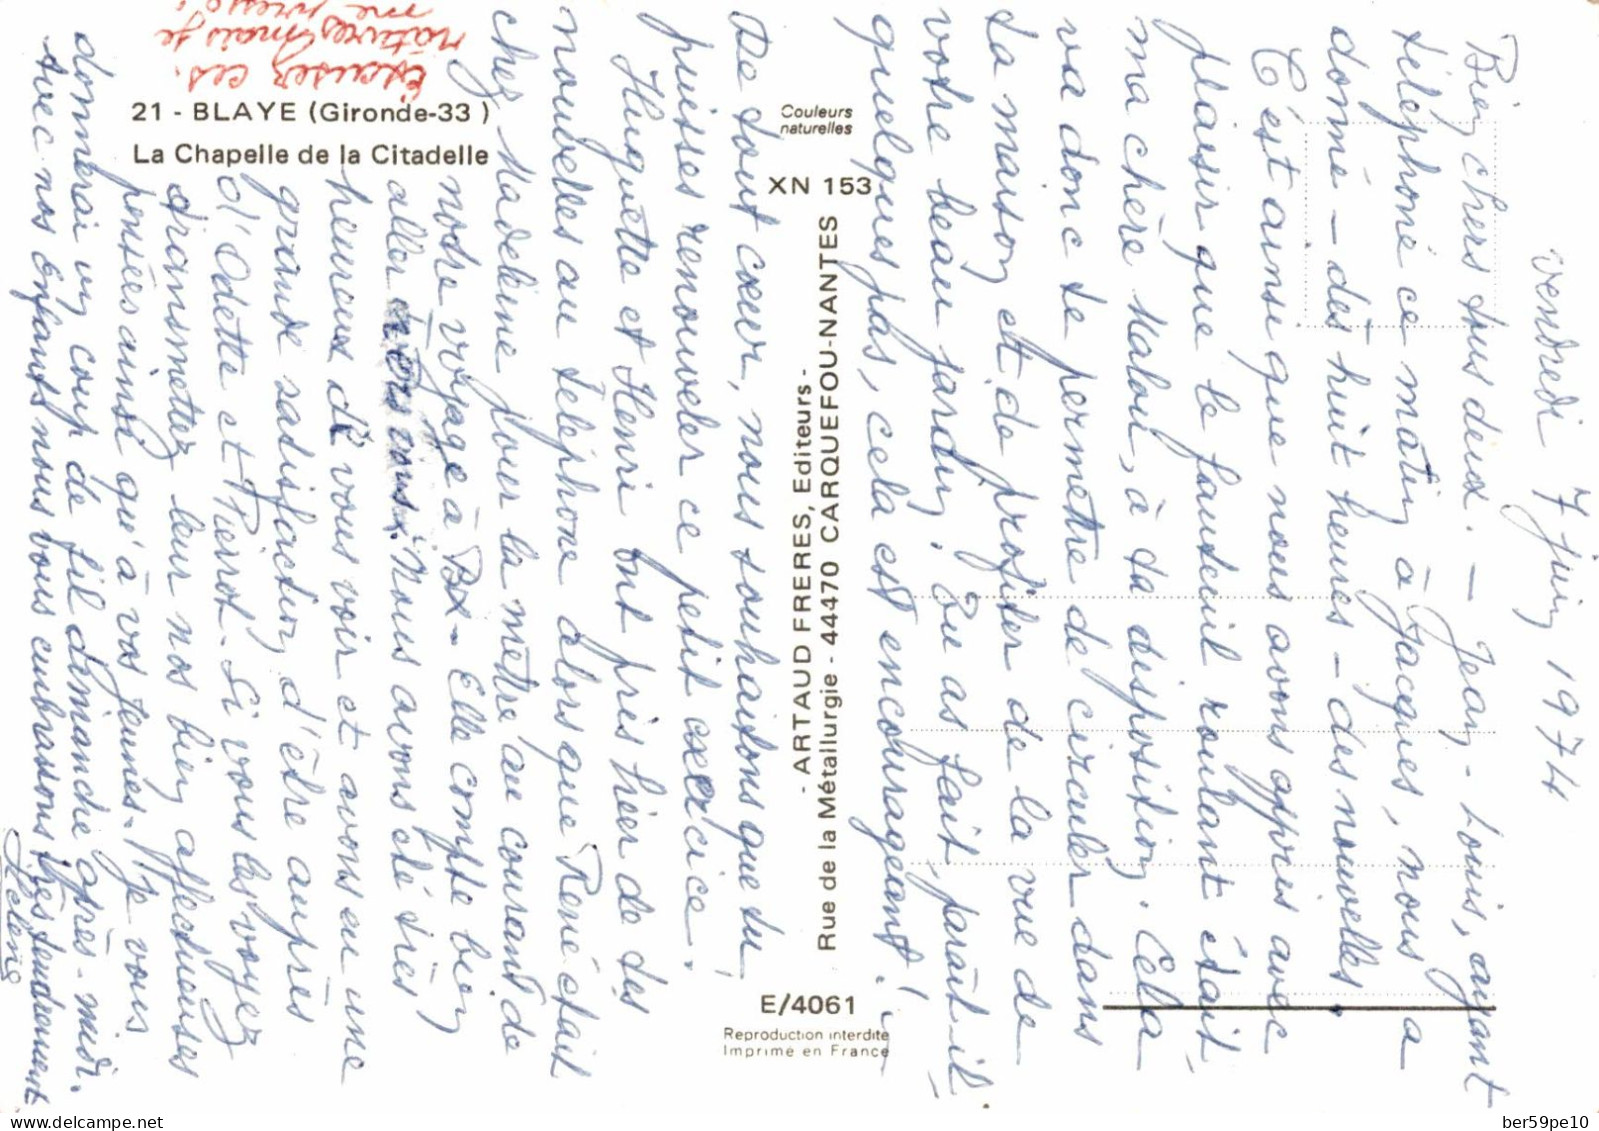 21 - BLAYE (Gironde-33)
La Chapelle de la Citadelle
Couleurs
naturelles
XN 153
- ARTAUD FRERES, Editeurs -
Rue de la Métallurgie - 44470 CARQUEFOU-NANTES
E/4061
Reproduction interdite
Imprimé en France
vendredi 7 juin 1974
Bien chers tous deux. — Jean-Louis, ayant
téléphoné ce matin à Jacques, nous a
donné - dès huit heures - des nouvelles.
C'est ainsi que nous avons appris avec
plaisir que le fauteuil roulant était
ma chère Malou, à ta disposition. Cela
va donc te permettre de circuler dans
la maison et de profiter de la vue de
votre beau jardin. Tu as fait, paraît-il
quelques pas, cela est encourageant!
De tout cœur, nous souhaitons que tu
puisses renouveler ce petit exercice!
Huguette et Henri ont pris hier de tes
nouvelles au téléphone alors que René était
chez Madeleine pour la mettre au courant de
notre voyage à Bx - Elle compte bien
aller vous. Nous avons été très
heureux de vous voir et avons eu une
grande satisfaction d'être auprès
d'Odette et Pierrot - Si vous les voyez
transmettez leur nos bien affectueuses
pensées ainsi qu'à vos jeunes - Je vous
donnerai un coup de fil dimanche après-midi.
Avec nos enfants nous vous embrassons très tendrement
Hélène
Excusez ces
ratures mais je
me presse!
ber59pe10